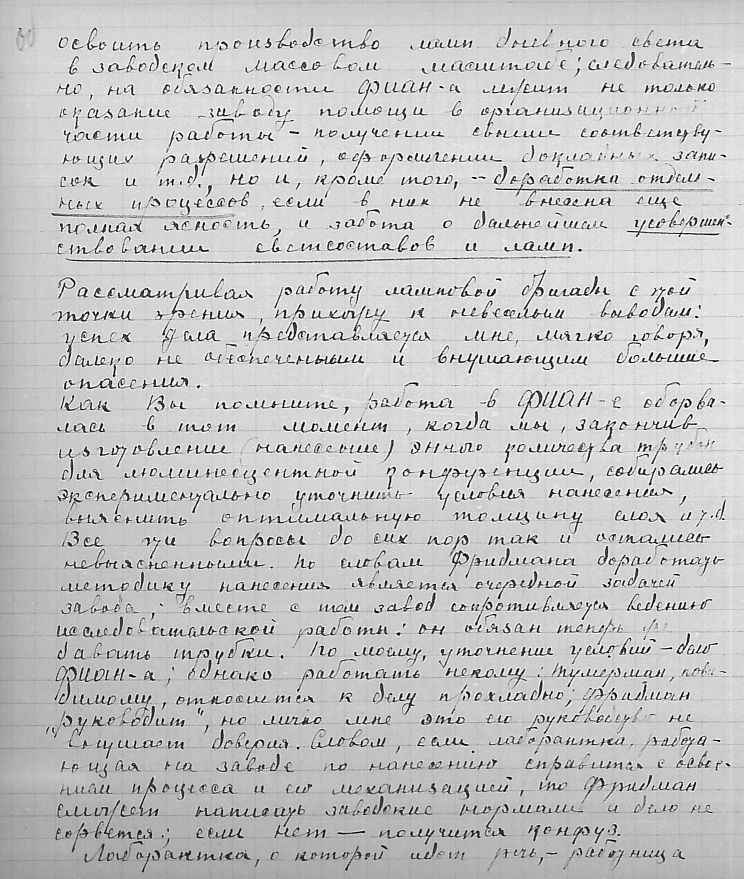 освоить производство ламп дневного света
в заводском массовом масштабе; следователь-
но, на обязанности ФИАН-а лежит не только
оказание заводу помощи в организационной
части работы – получении соответству-
ющих разрешений, оформлении докладных запи-
сок и т.д., но и, кроме того, – доработка отдель-
ных процессов, если в них не внесена еще
полная ясность, и забота о дальнейшем усовершен-
ствовании светсоставов и ламп.
Рассматривая работу ламповой бригады с этой
точки зрения, прихожу к невеселым выводам:
успех дела представляется мне, мягко говоря,
далеко не обеспеченным и внушающим большие
опасения.
Как Вы помните, работа в ФИАН-е оборва-
лась в тот момент, когда мы, закончив
изготовление (нанесение) энного количества трубок
для люминесцентной конференции, собирались
экспериментально уточнить условия нанесения,
выяснить оптимальную толщину слоя и т.д.
Все эти вопросы до сих пор так и остались
невыясненными. По словам Фридмана доработать
методику нанесения является очередной задачей
завода; вместе с тем завод сопротивляется ведению
исследовательской работы: он обязан теперь
давать трубки. По моему, уточнение условий – дело
ФИАН-а; однако работать некому: Тумерман, пови-
димому, относится к делу прохладно; Фридман
"руководит", но лично мне это его руководство не
внушает доверия. Словом, если лаборантка, работа-
ющая на заводе по нанесению справится с освое-
нием процесса и его механизацией, то Фридман
сможет написать заводские нормали и дело не
сорвется; если нет – получится конфуз.
Лаборантка, о которой идет речь, – работница